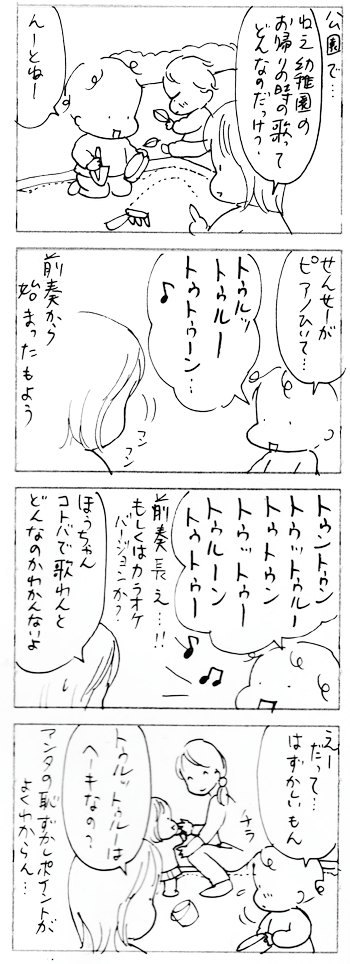 公園で…
ねえ幼稚園の
お帰りの時の歌って
どんなのだっけ?
んーとねー
せんせーが
ピアノひいて…
トゥルッ
トゥルー
トゥトゥーン…
♪
前奏から
始まったもよう
フン
フン
トゥントゥン
トゥットゥルー
トゥトゥン
トゥットゥー
トゥルーン
トゥトゥー
♪♫
前奏長え…!!
もしくはカラオケ
バージョンか?
ほうちゃん
コトバで歌わんと
どんなのかわかんないよ
えー
だって…
はずかしいもん
チラ
トゥルットゥルーは
ヘーキなの?
アンタの恥ずかしポイントが
よくわからん…